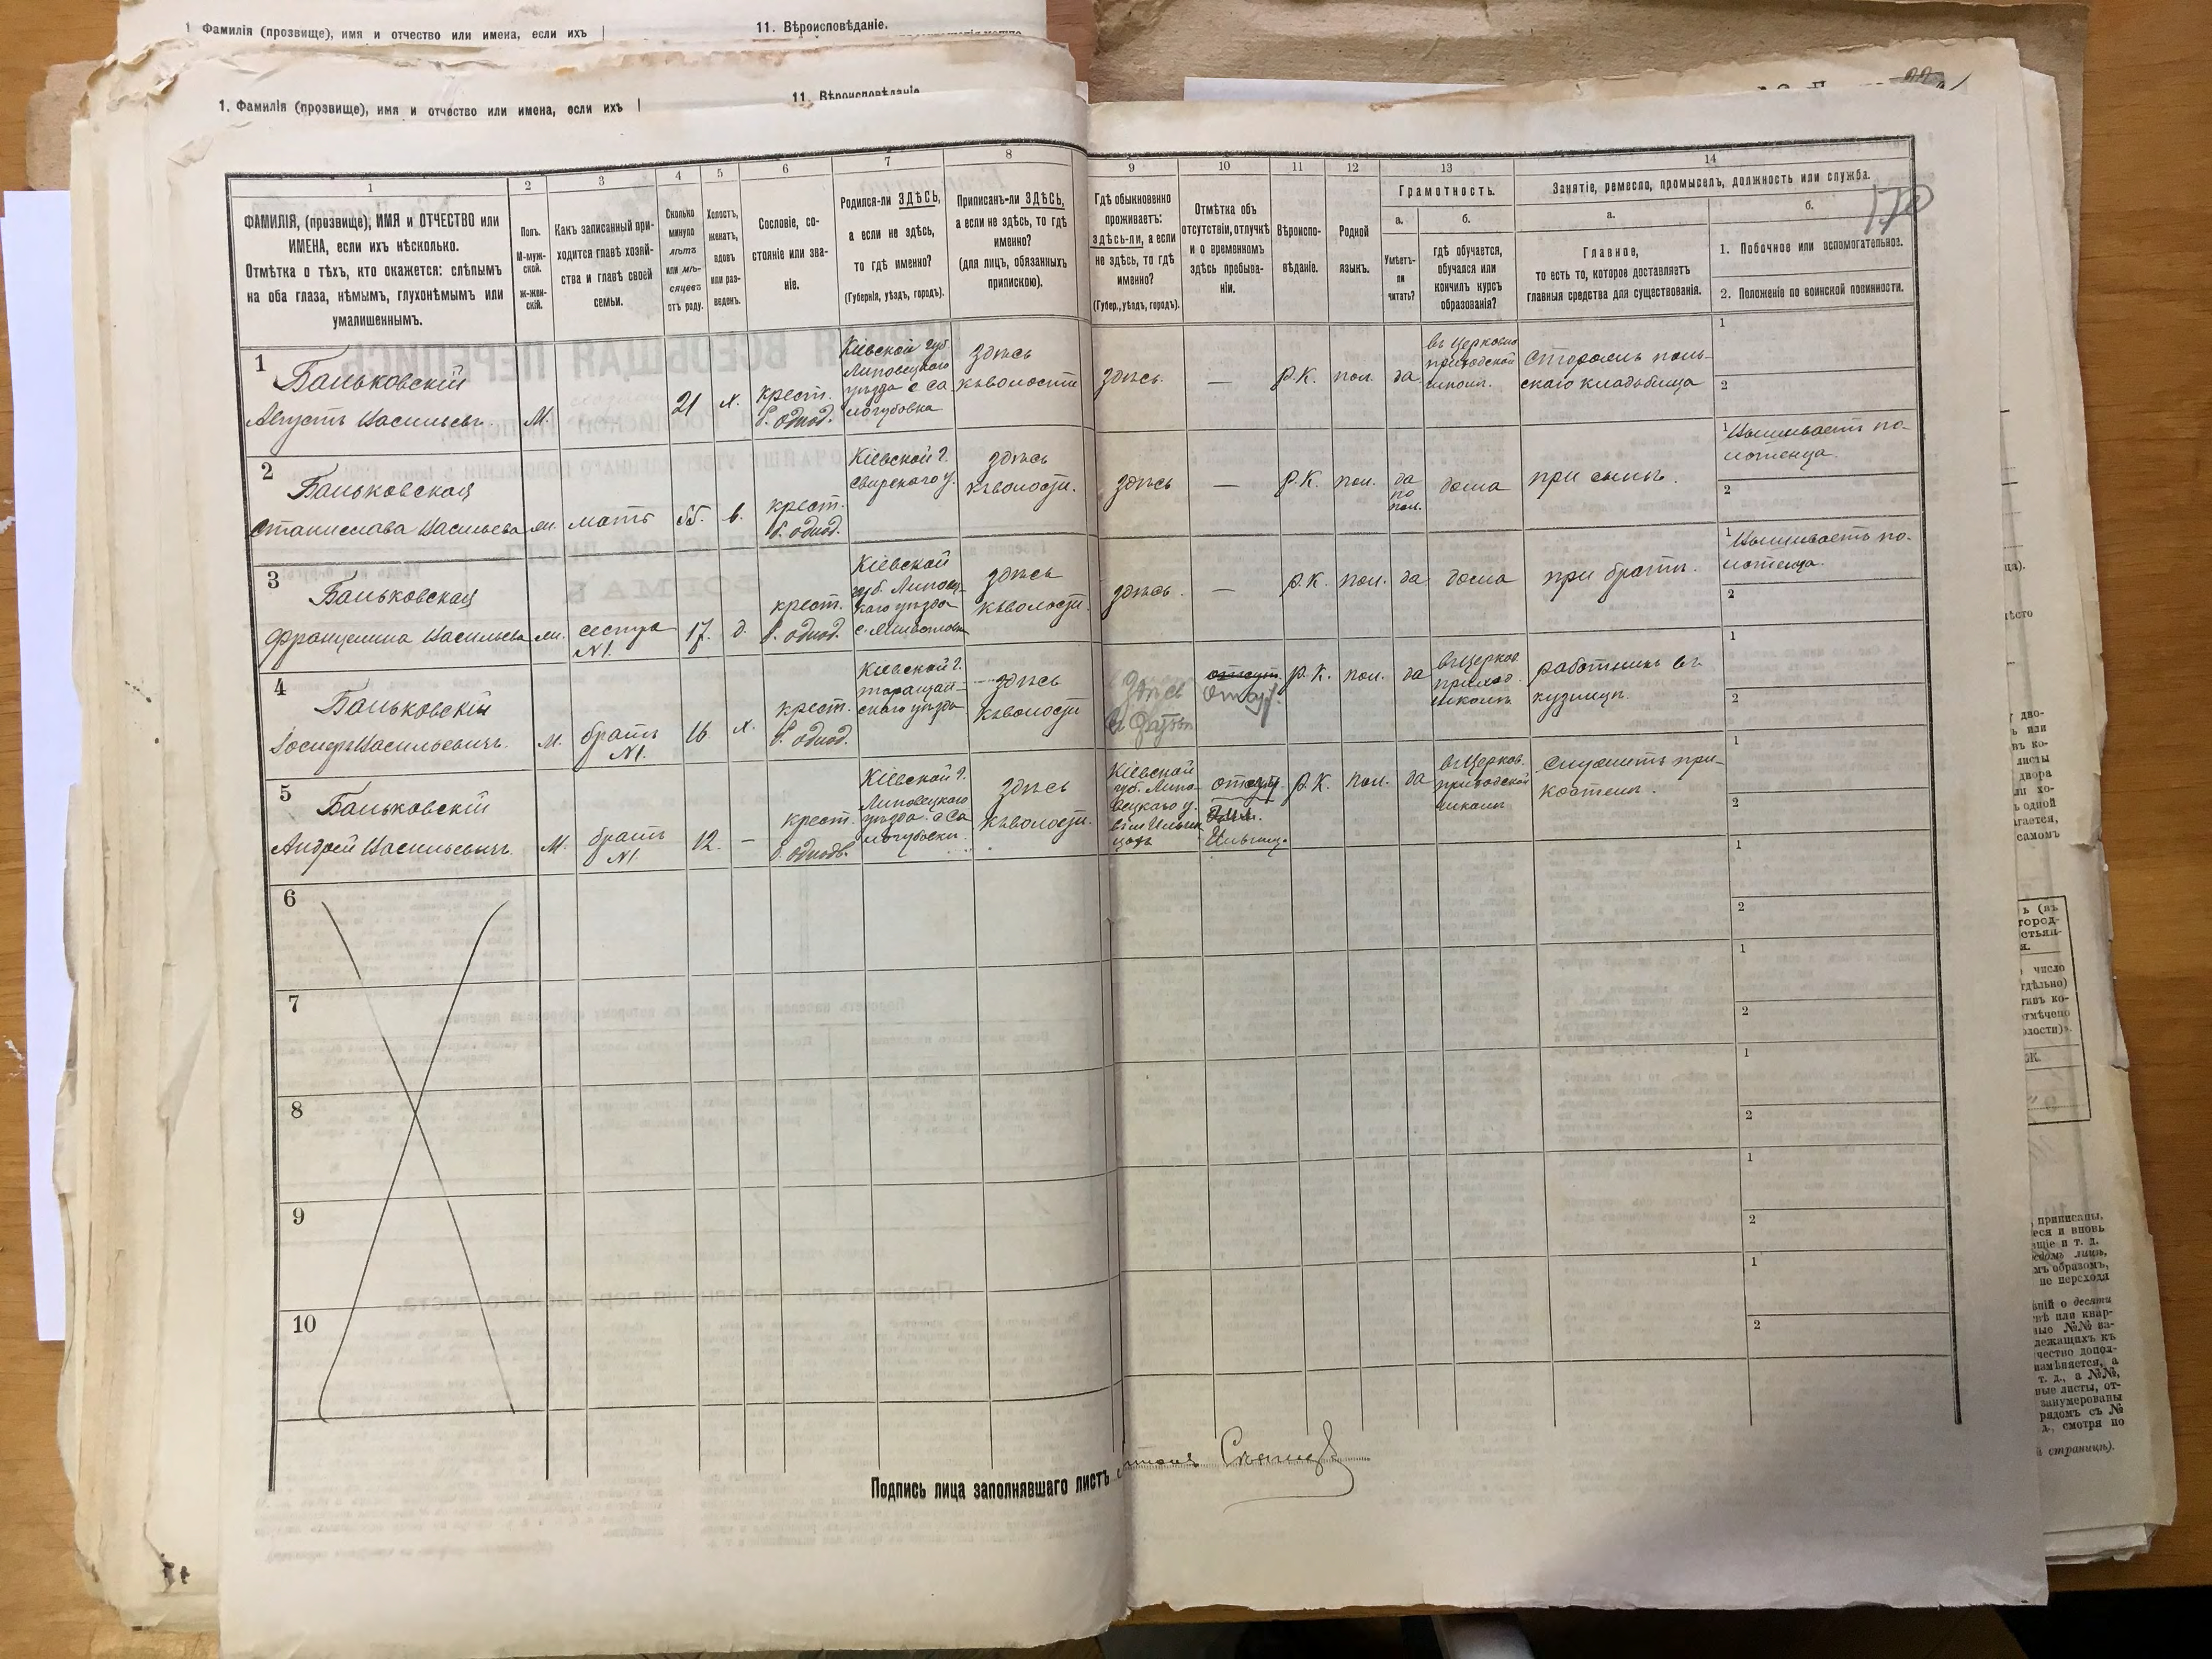 1 Фамилія (прозвище), имя и отчество или имена, если ихъ
11. Вѣроисповѣданіе.
1. Фамилія (прозвище), имя и отчество или имена, если ихъ
11. Вѣроисповѣданіе
170
1
2
3
4
5
6
7
8
9
10
11
12
13
14
ФАМИЛІЯ, (прозвище), ИМЯ и ОТЧЕСТВО или
ИМЕНА, если ихъ нѣсколько.
Отмѣтка о тѣхъ, кто окажется: слѣпымъ
на оба глаза, нѣмымъ, глухонѣмымъ или
умалишеннымъ.
Полъ.
М-муж-
ской.
Ж-жен-
скій.
Какъ записанный при-
ходится главѣ хозяй-
ства и главѣ своей
семьи.
Сколько
минуло
лѣтъ
или мѣ-
сяцевъ
отъ роду.
Холостъ,
женатъ,
вдовъ
или раз-
веденъ.
Сословіе, со-
стояніе или зва-
ніе.
Родился-ли ЗДѢСЬ,
а если не здѣсь,
то гдѣ именно?
(Губернія, уѣздъ, городъ).
Приписанъ-ли ЗДѢСЬ,
а если не здѣсь, то гдѣ
именно?
(для лицъ, обязанныхъ
припискою).
Гдѣ обыкновенно
проживаетъ:
здѣсь-ли, а если
не здѣсь, то гдѣ
именно?
(Губер., уѣздъ, городъ).
Отмѣтка объ
отсутствіи, отлучкѣ
и о временномъ
здѣсь пребыва-
ніи.
Вѣроиспо-
вѣданіе.
Родной
языкъ.
Грамотность.
а.
Умѣетъ-
ли
читать?
б.
гдѣ обучается,
обучался или
кончилъ курсъ
образованія?
Занятіе, ремесло, промыселъ, должность или служба.
а.
Главное,
то есть то, которое доставляетъ
главныя средства для существованія.
б.
1. Побочное или вспомогательное.
2. Положеніе по воинской повинности.
1
Баньковскій
Августъ Васильевъ.
М.
21
х.
крест.
б. однод.
Кіевской губ.
Липовецкаго
уѣзда с Са
логубовка
здѣсь
къ волости
здѣсь.
—
Р.К.
пол.
да
въ церковно
приходской
школѣ.
Сторожъ поль-
скаго кладбища
1
2
2
Баньковская
Станислава Васильева
ж.
мать
55.
в.
крест.
б. однод.
Кіевской г.
Сквирскаго у.
здѣсь
къ волости.
здѣсь
—
Р.К.
пол.
да
по
пол.
дома
при сынѣ.
1 Вышиваетъ по-
лотенца.
2
3
Баньковская
Францишка Васильева
ж.
сестра
N1.
17.
д.
крест.
б. однод.
Кіевской
губ. Липовец-
каго уѣзда
здѣсь
къ волости.
здѣсь.
—
Р.К.
пол.
да
дома
при братѣ.
1 Вышиваетъ по-
лотенца.
2
4
Баньковскій
Іосифъ Васильевичъ.
М.
братъ
N1.
16
х.
крест.
б. однод.
Кіевской г.
таращан-
скаго уѣзда
здѣсь
къ волости
Здѣсь
отсут.
Р.К.
пол.
да
въ церков.
приход.
школѣ
работникъ въ
кузницѣ.
1
2
5
Баньковскій
Андрей Васильевичъ.
М.
братъ
N1.
12.
—
крест.
б. однодв.
Кіевской г.
Липовецкаго
уѣзда с Са
логубовки.
здѣсь
къ волости.
Кіевской
губ. Липо-
вецкаго у.
въ м Ильин
цахъ
отсут.
Ильинц.
Р.К.
пол.
да
въ церков.
приходской
школѣ
Служитъ при
костелѣ.
1
2
6
1
2
7
1
2
8
1
2
9
1
2
10
1
2
Подпись лица заполнявшаго листъ